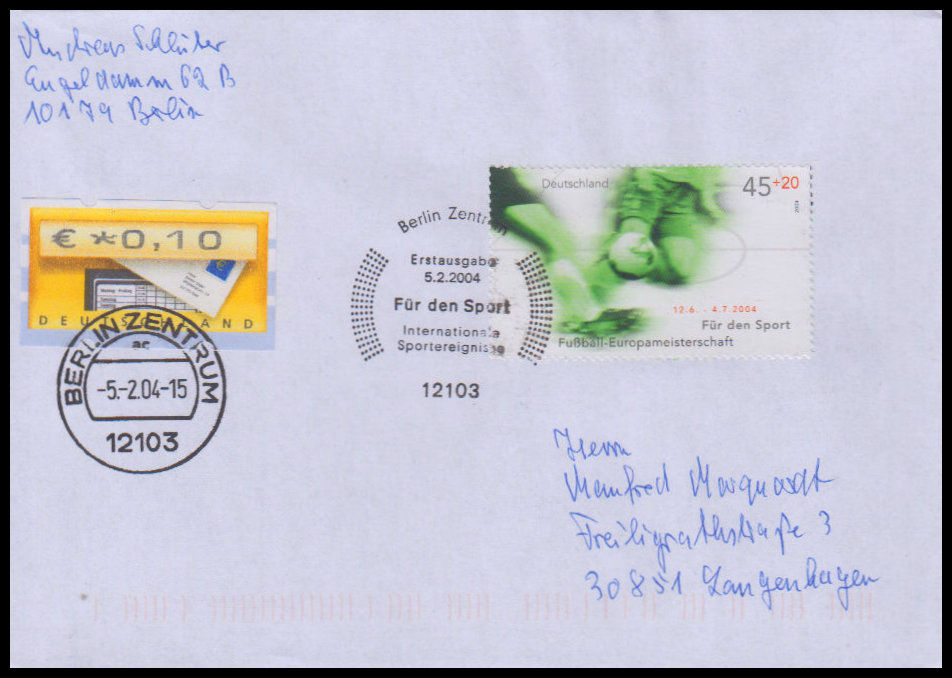 Andreas Schlüter
Engeldamm 62 B
10179 Berlin
€ *0,10
DEUTSCHLAND
BERLIN ZENTRUM
ac
-5.-2.04-15
12103
Berlin Zentrum
Erstausgabe
5.2.2004
Für den Sport
Internationale
Sportereignisse
12103
Deutschland
45+20
2004
12.6. - 4.7.2004
Für den Sport
Fußball-Europameisterschaft
Herrn
Manfred Marquardt
Freiligrathstraße 3
30851 Langenhagen